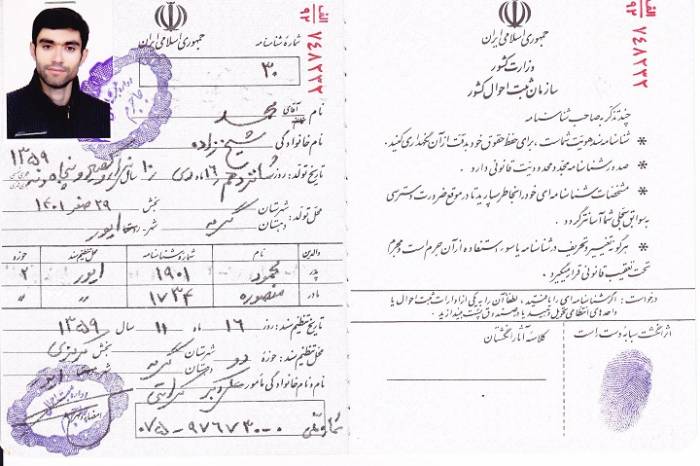 جمهوری اسلامی ایران
شماره شناسنامه
۳۰
الف
۹۲
۷۴۸۲۳۲
نام آقای محمد
نام خانوادگی شیخ زاده
تاریخ تولد: روز شانزدهم ۱۶ ماه دی ۱۰ سال هزار و سیصد و پنجاه و نه ۱۳۵۹
۲۹ صفر ۱۴۰۱
محل تولد: شهرستان بخش
دهستان شهر
والدین نام شماره شناسنامه محل تنظیم سند حوزه
پدر محمود ۱۹۰۱ ایور ۲
مادر منصوره ۱۷۳۴ " "
تاریخ تنظیم سند: روز ۱۶ ماه ۱۱ سال ۱۳۵۹
محل تنظیم سند: حوزه دو شهرستان بخش مرکزی
دهستان شهر
نام و نام خانوادگی مأمور
شماره ملی
۰۷۵۰-۹۷۶۷۳۰-۰
جمهوری اسلامی ایران
وزارت کشور
سازمان ثبت احوال کشور
الف
۹۲
۷۴۸۲۳۲
چند تذکر به صاحب شناسنامه
* شناسنامه سند هویت شماست، برای حفظ حقوق خود به دقت از آن نگهداری کنید.
* صدور شناسنامه مجدد محدودیت قانونی دارد.
* مشخصات شناسنامه ای خود را بخاطر بسپارید تا در موقع ضرورت دسترسی
به سوابق سجلی شما آسانتر گردد.
* هرگونه تغییر و تحریف در شناسنامه یا سوء استفاده از آن جرم است و مجرم
تحت تعقیب قانونی قرار میگیرد.
درخواست: اگر شناسنامه ای را یافتید، لطفاً آن را به یکی از ادارات ثبت احوال یا
واحدهای انتظامی تحویل دهید یا در صندوق پست بیندازید.
اثر انگشت سبابه دست است
کلاسه آثار انگشتان